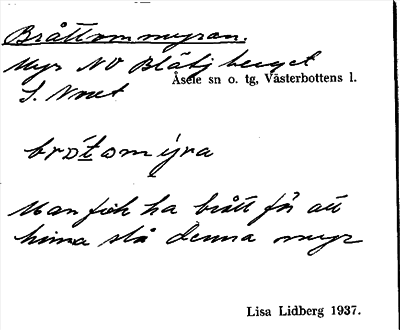 Bråttommyran.
Myr NV Blåbjberget
Åsele sn o. tg, Västerbottens l.
brótomýra
Man fick ha brått för att
hinna slå denna myr
Lisa Lidberg 1937.